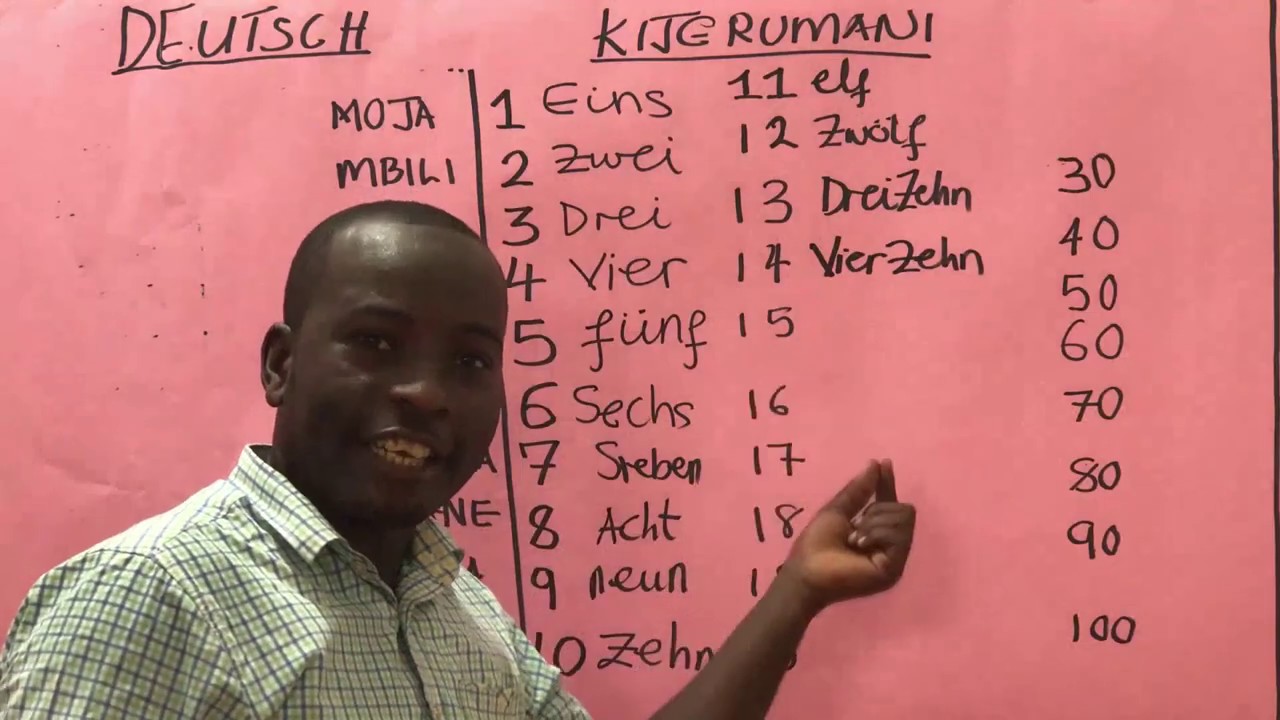 DEUTSCH KIJERUMANI
MOJA 1 Eins 11 elf
MBILI 2 Zwei 12 Zwölf
3 Drei 13 DreiZehn 30
4 Vier 14 VierZehn 40
5 fünf 15 50
60
6 Sechs 16 70
A 7 Sieben 17 80
NE 8 Acht 18 90
A 9 neun
10 Zehn 100